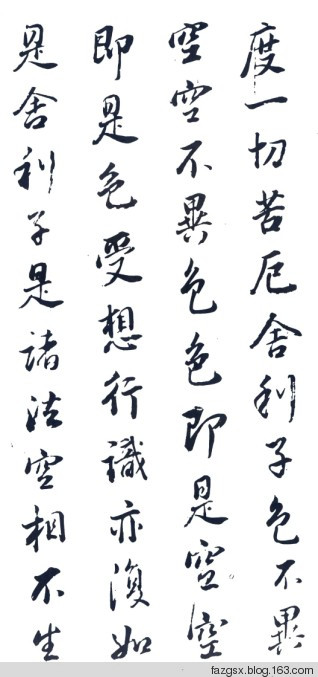 度一切苦厄舍利子色不異
空空不異色色即是空空
即是色受想行識亦復如
是舍利子是諸法空相不生
fazgsx.blog.163.com